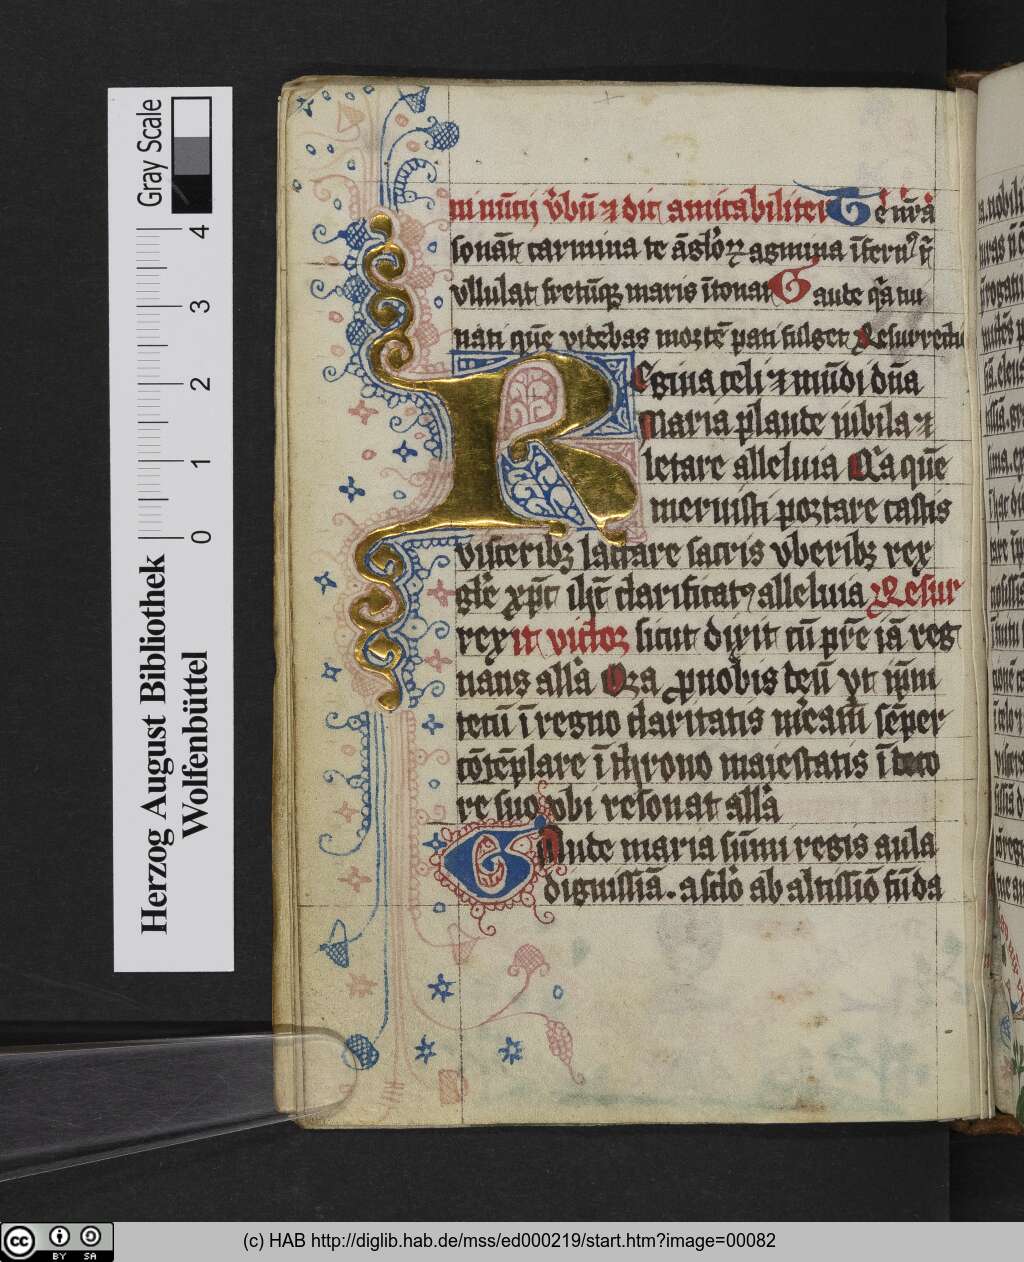 Gray Scale
4
3
2
1
0
Herzog August Bibliothek
Wolfenbüttel
ni nūcij v̉bū ⁊ dic amicabiliter Te nr̄a
sonāt carmina te āglo⁊ agmina
vllulat fretūqꝫ maris ītonat Gaude qͥa tui
nati quē videbas mortē pati fulget Resurrectio
Regina celi ⁊ mūdi dn̄a
maria plaude iubila ⁊
letare alleluia Qͥa quē
meruisti portare castis
visceribꝫ lactare sacris vberibꝫ rex
gl̄e xp̄c ihc̄ clarificatꝰ alleluia Resur
rexit victor sicut dixit cū pr̄e iā reg
nans all̄a Ora ꝓ nobis deū vt ip̄m
tecū ī regno claritatis sēper
cōtēplare ī throno maiestatis ī deco
re suo vbi resonat all̄a
Gaude maria sūmi regis aula
dignissiā. ab altissiō fūda
(c) HAB http://diglib.hab.de/mss/ed000219/start.htm?image=00082
cc BY SA